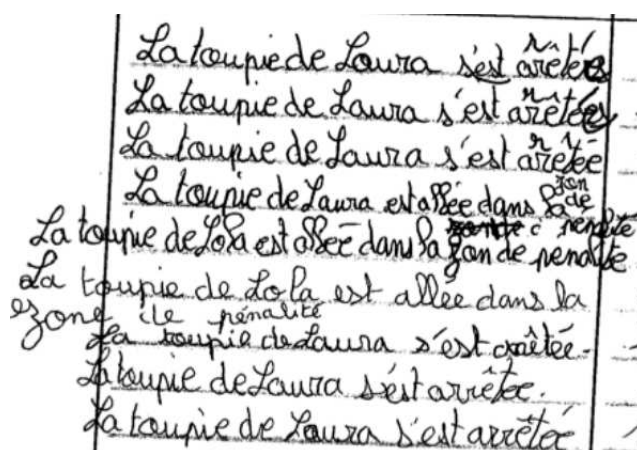 La toupie de Laura s'est arêtée
La toupie de Laura s'est arêtée
La toupie de Laura s'est arêtée
La toupie de Laura est allée dans la zon de penalite
La toupie de Lola est allée dans la zon de penalite
La toupie de Lola est allée dans la
zone de pénalité
La toupie de Laura s'est arrêtée.
La toupie de Laura s'est arrêtée.
La toupie de Laura s'est arrêtée